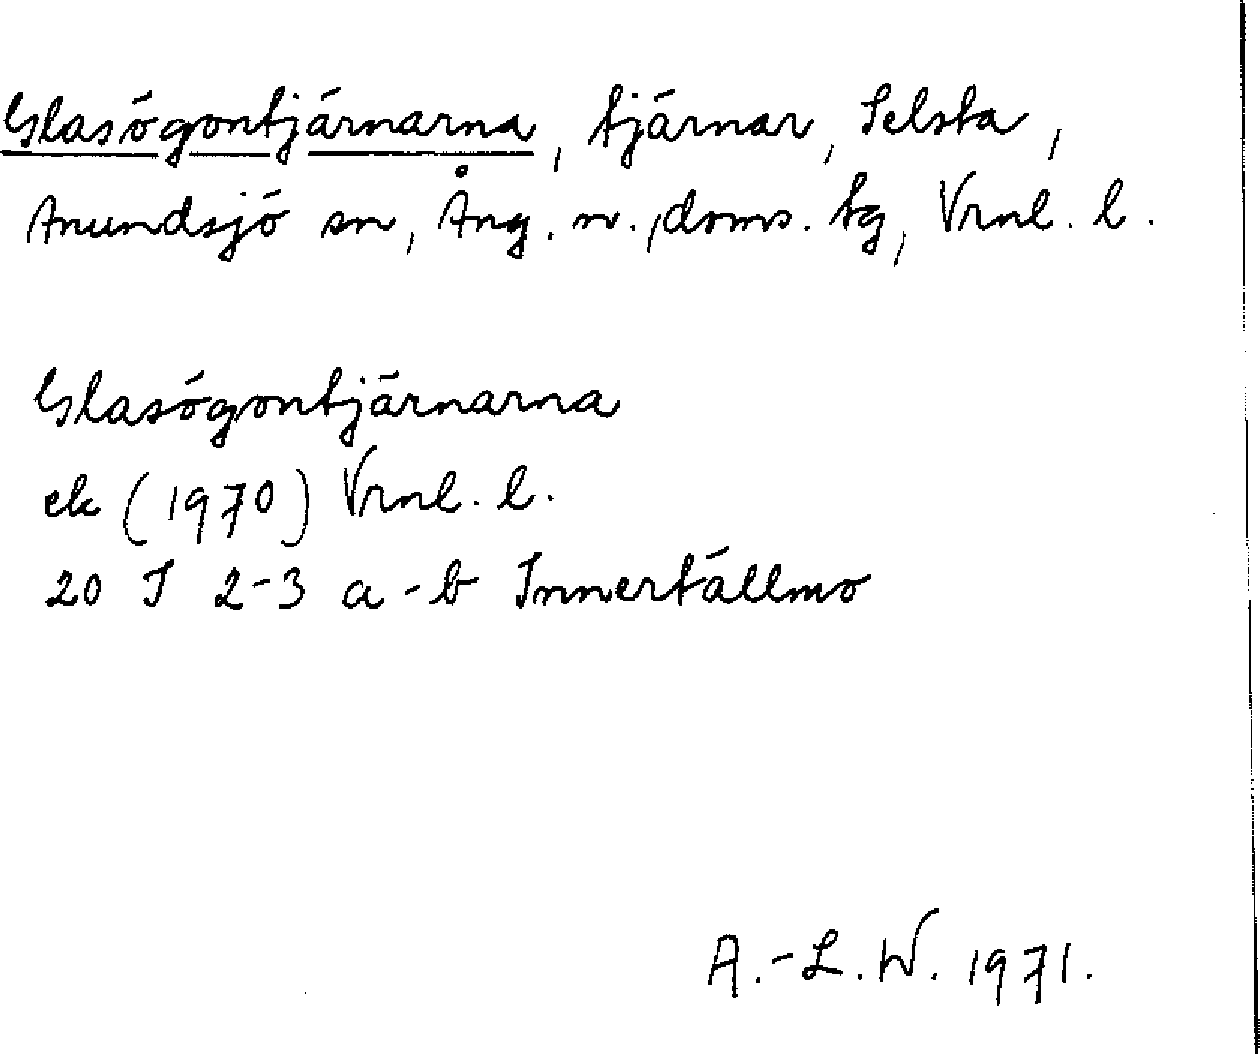 Glasögontjärnarna, tjärnar, Selsta,
Anundsjö sn, Ång. n., doms. tg, Vrnl. l.
Glasögontjärnarna
ek (1970) Vrnl. l.
20 I 2-3 a-b Innertällmo
A.-L.W. 1971.